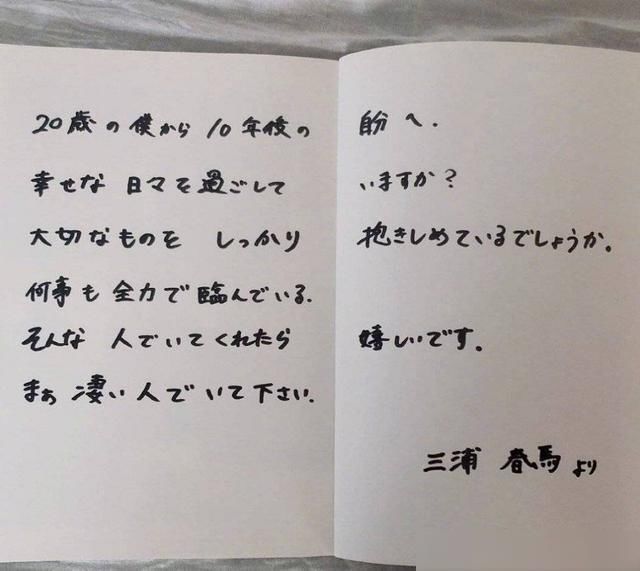 20歳の僕から 10年後の 自分へ.
幸せな 日々を過ごして いますか?
大切なものを しっかり 抱きしめているでしょうか。
何事も 全力で 臨んでいる.
そんな 人でいてくれたら 嬉しいです。
まぁ 凄い人でいて下さい.
三浦 春馬より